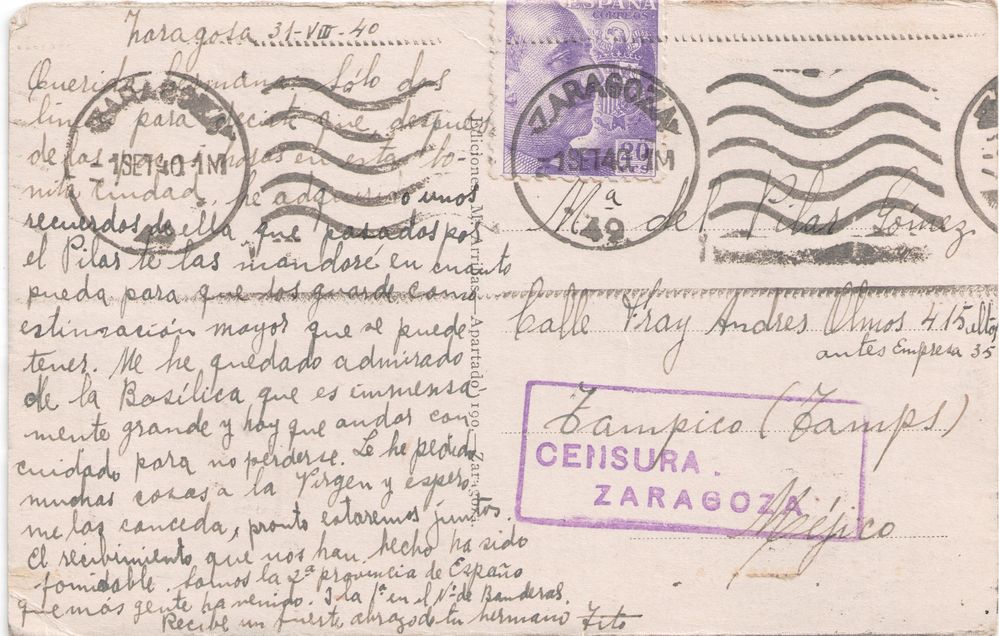 Zaragosa 31-VIII-40
Querida hermana: Sólo dos
lineas para decirte que, después
de las en esta bo-
nita ciudad, he adquirido unos
recuerdos de ella que pasados por
el Pilar te las mandaré en cuanto
pueda para que los guarde como
estimación mayor que se puede
tener. Me he quedado admirado
de la Basílica que es inmensa
mente grande y hay que andar con
cuidado para no perderse. Le he pedido
muchas cosas a la Virgen y espero
me las conceda, pronto estaremos juntos.
El recibimiento que nos han hecho ha sido
fomidable. Somos la 2ª provincia de España
que más gente ha venido. I la 1ª en el Nº de Banderas.
Recibe un fuerte abrazo de tu hermano Tito
Ediciones M. Arribas.-Apartado 190.-Zaragoza
ESPAÑA
CORREOS
20
CTS
ZARAGOZA
-1SET40.1M
49
ZARAGOZA
-1SET40.1M
49
Mª del Pilar Gómez
Calle Fray Andres Olmos 415 altos
antes Empresa 35
Tampico (Tamps)
Méjico
CENSURA.
ZARAGOZA